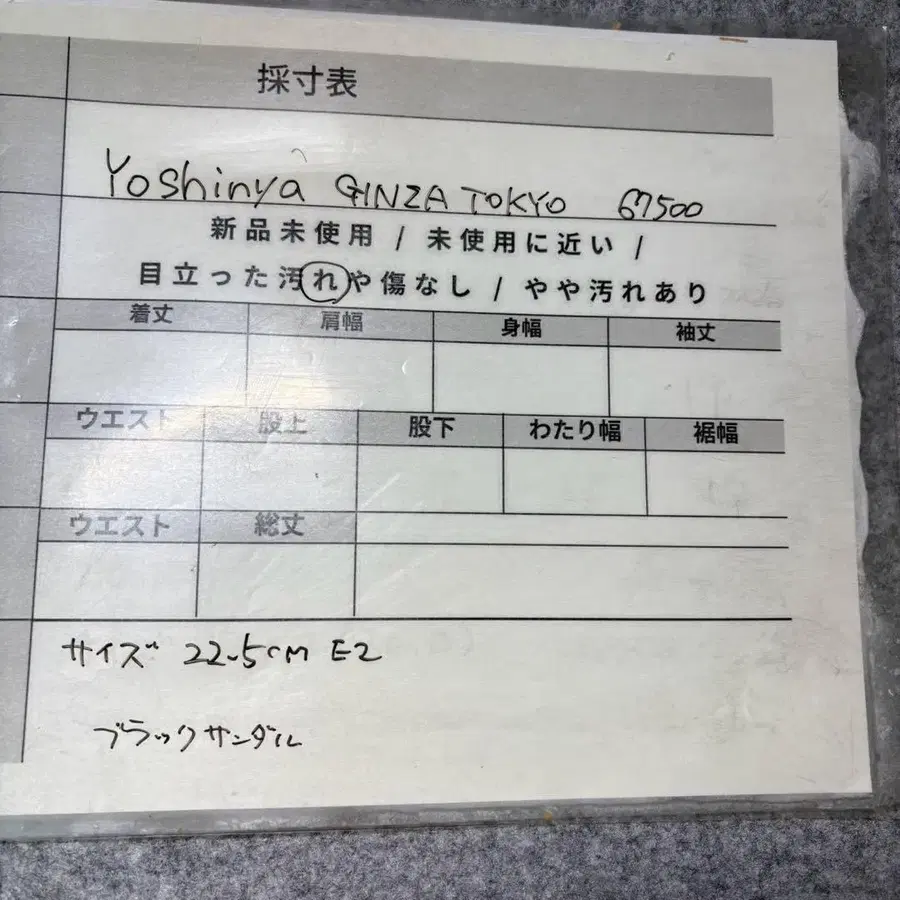 採寸表
Yoshinya GINZA TOKYO 67500
新品未使用 / 未使用に近い /
目立った汚れや傷なし / やや汚れあり
着丈 肩幅 身幅 袖丈
ウエスト 股上 股下 わたり幅 裾幅
ウエスト 総丈
サイズ 22.5cm E2
ブラックサンダル